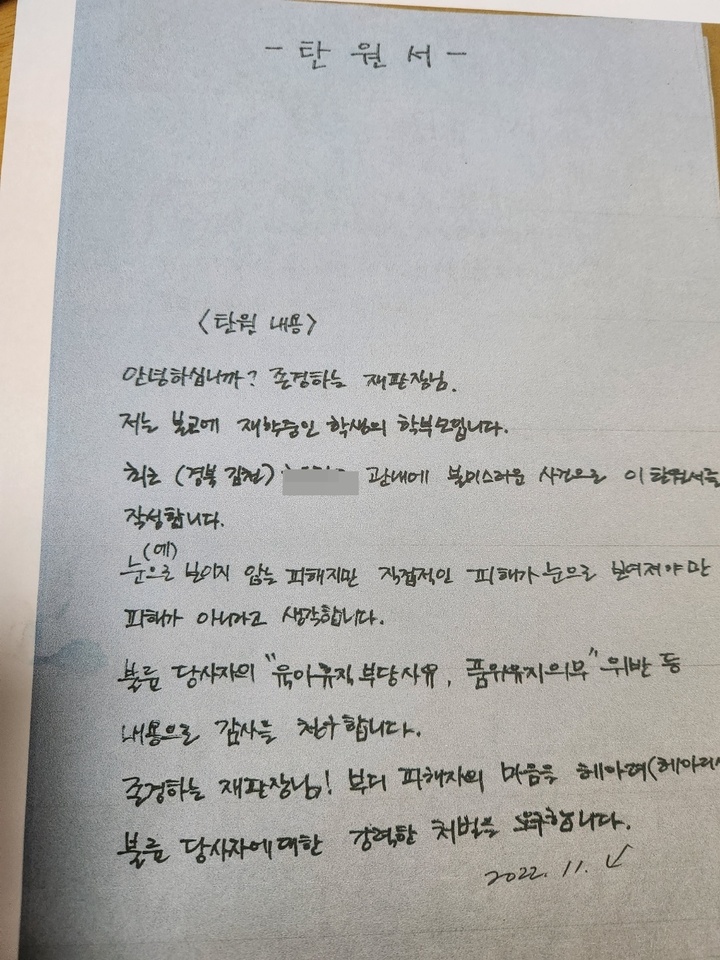 - 탄 원 서 -
<탄원 내용>
안녕하십니까? 존경하는 재판장님.
저는 본교에 재학중인 학생의 학부모입니다.
최근 (경북 김천) 관내에 불미스러운 사건으로 이 탄원서를
작성합니다.
(에)
눈으로 보이지 않는 피해지만 직접적인 피해가 눈으로 보여져야만
피해가 아니라고 생각합니다.
불륜 당사자의 "육아휴직 부당사유, 품위유지의무" 위반 등
내용으로 감사를 청구합니다.
존경하는 재판장님! 부디 피해자의 마음을 헤아려(헤아리
불륜 당사자에 대한 강력한 처벌을 요구합니다.
2022. 11.